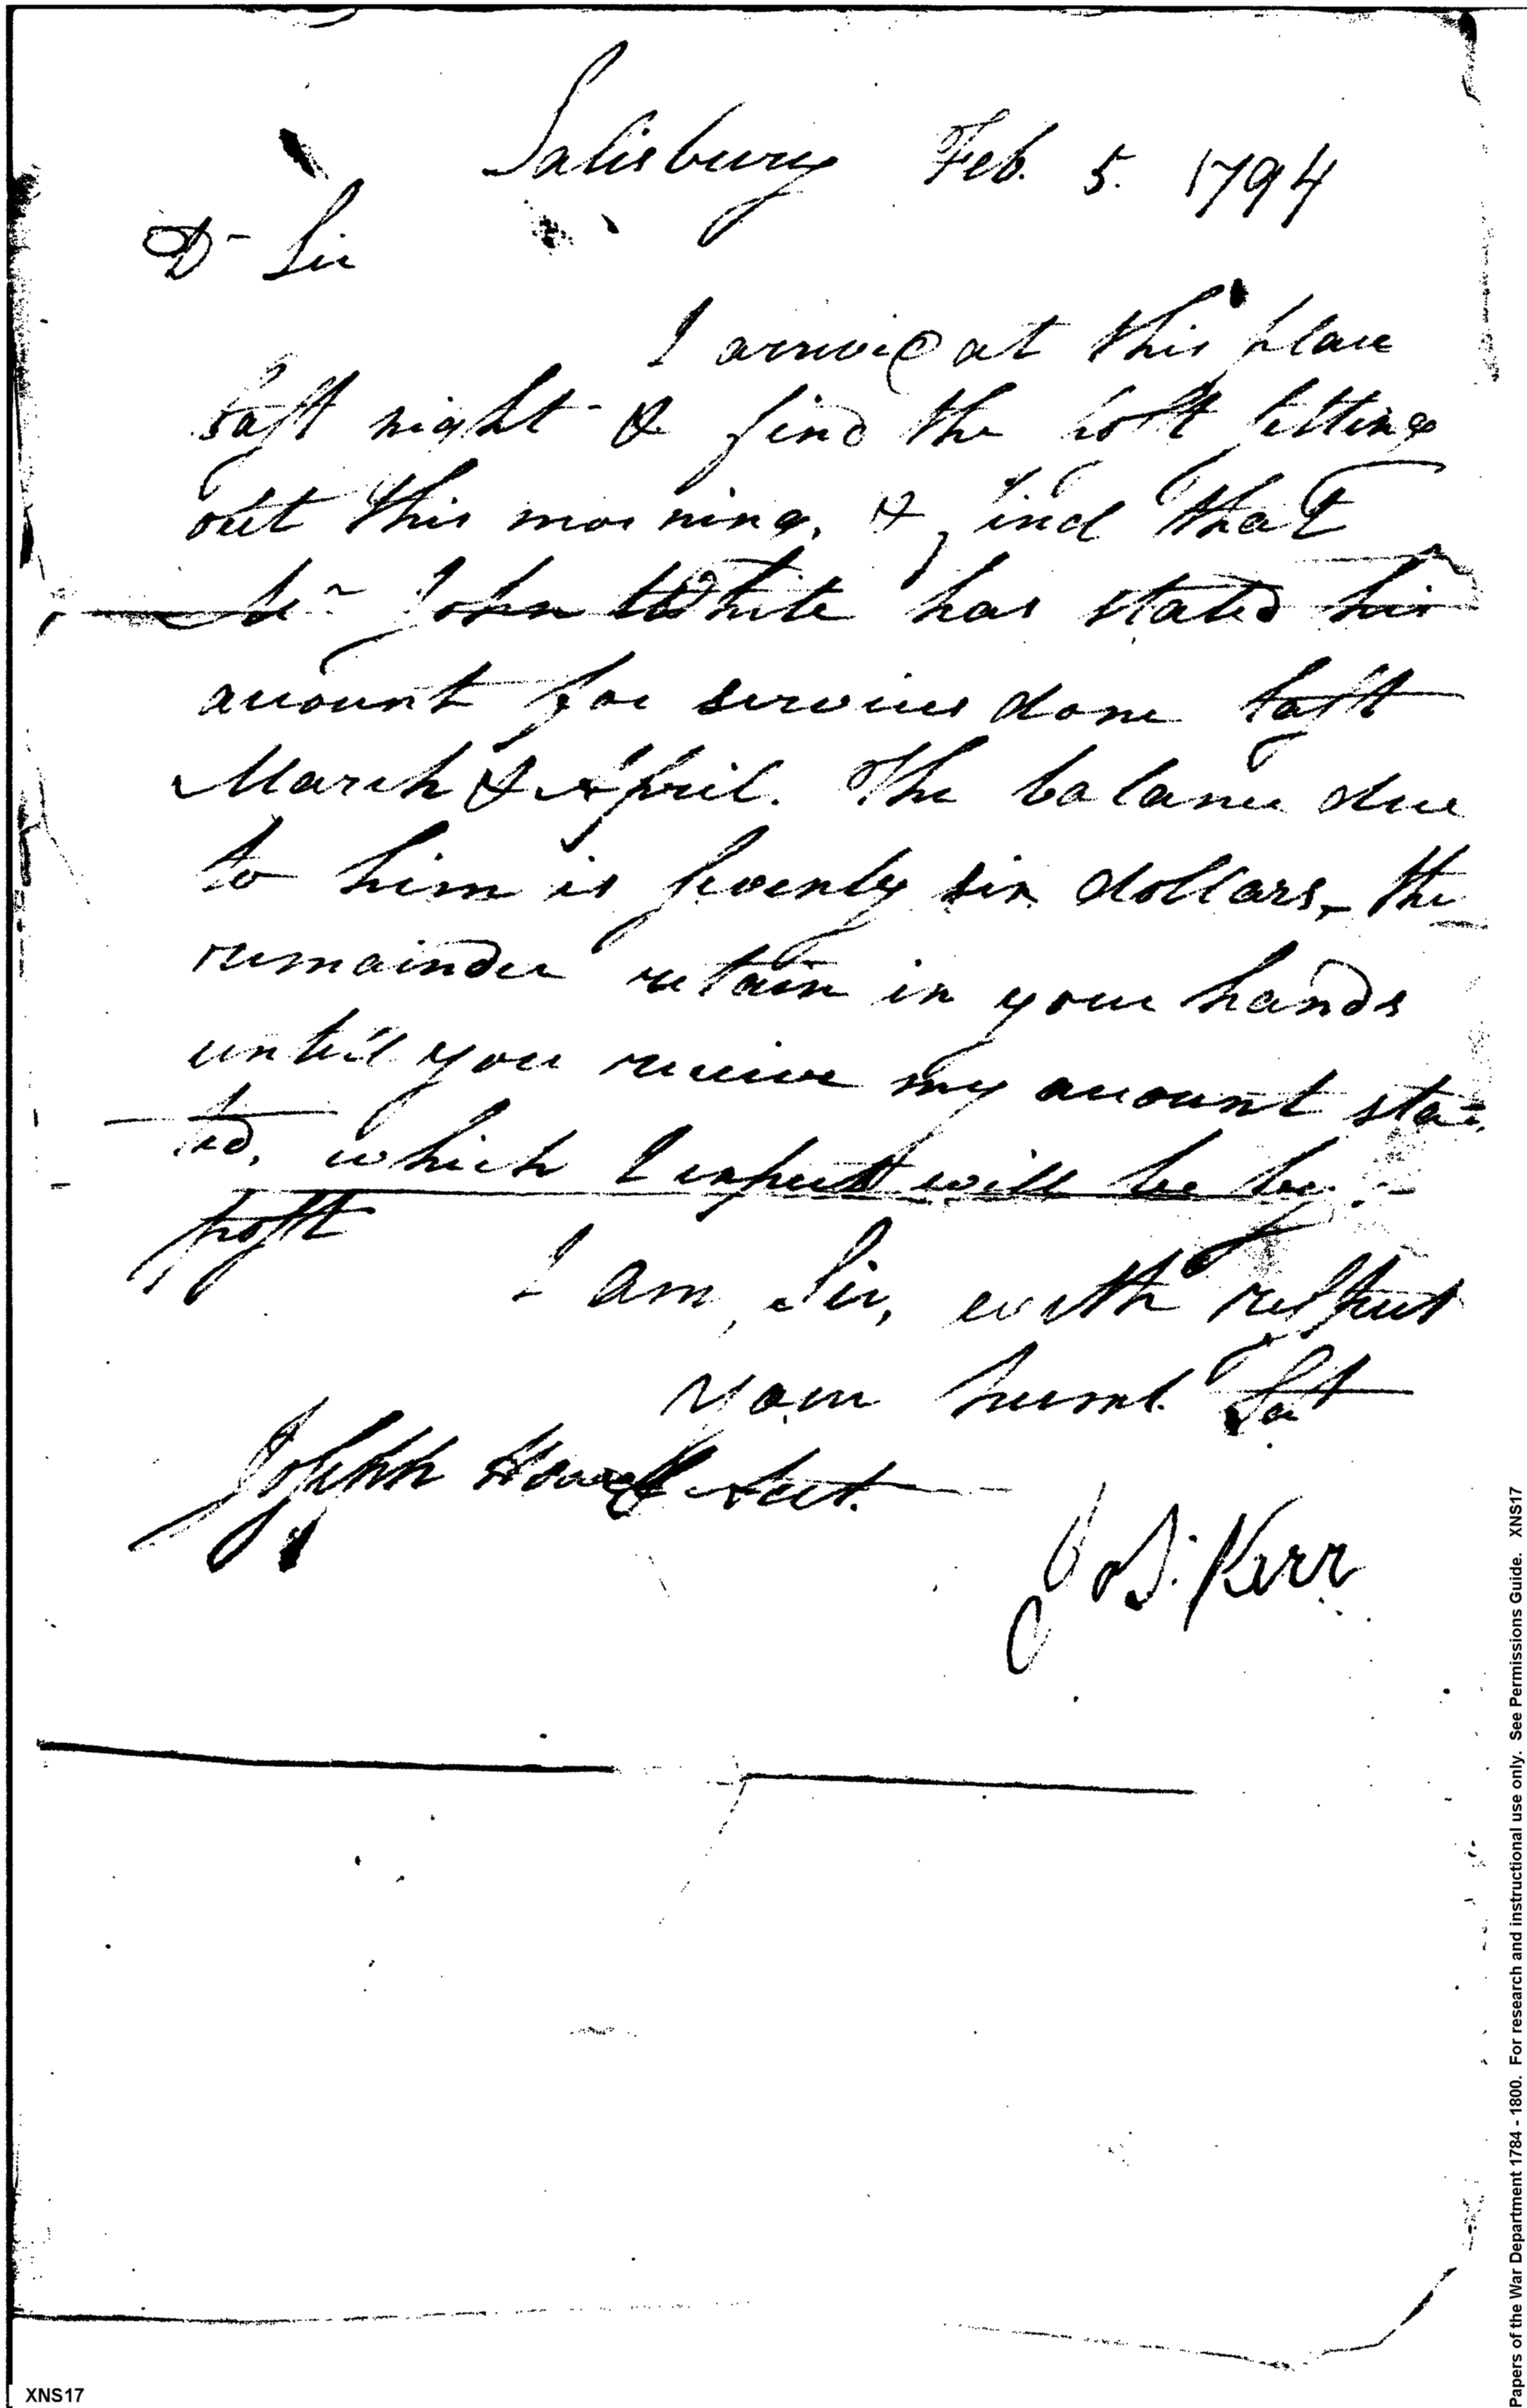 Salisbury Feb. 5. 1794
Dr Sir
I arrived at this place
last night & find the post setting
out this morning, & find that
Dr John White has stated his
account for services done last
March & April. The balance due
to him is seventy six dollars, the
remainder retain in your hands
until you receive my account sta-
ted, which I expect will be by
post
I am, Sir, with respect
your huml. Sert
Joseph Howell Acct.
Jos: Kerr
XNS17
Papers of the War Department 1784 - 1800. For research and instructional use only. See Permissions Guide. XNS17